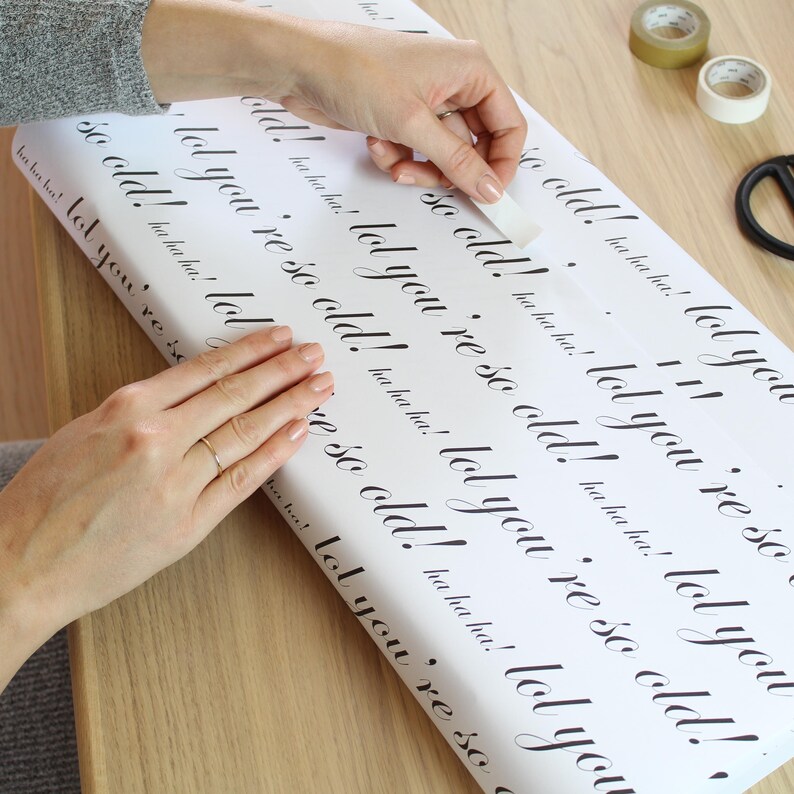 ha
so old! ha ha ha! lol you
so old! ha ha ha! lol you're so
old! ha ha ha! lol you're so old! ha ha ha! lol you
lol you're so old! ha ha ha! lol you're so old!
so old! ha ha ha! lol 're so old! ha ha ha! lol you
ha ha ha! lol you're so ha ha! lol you're so